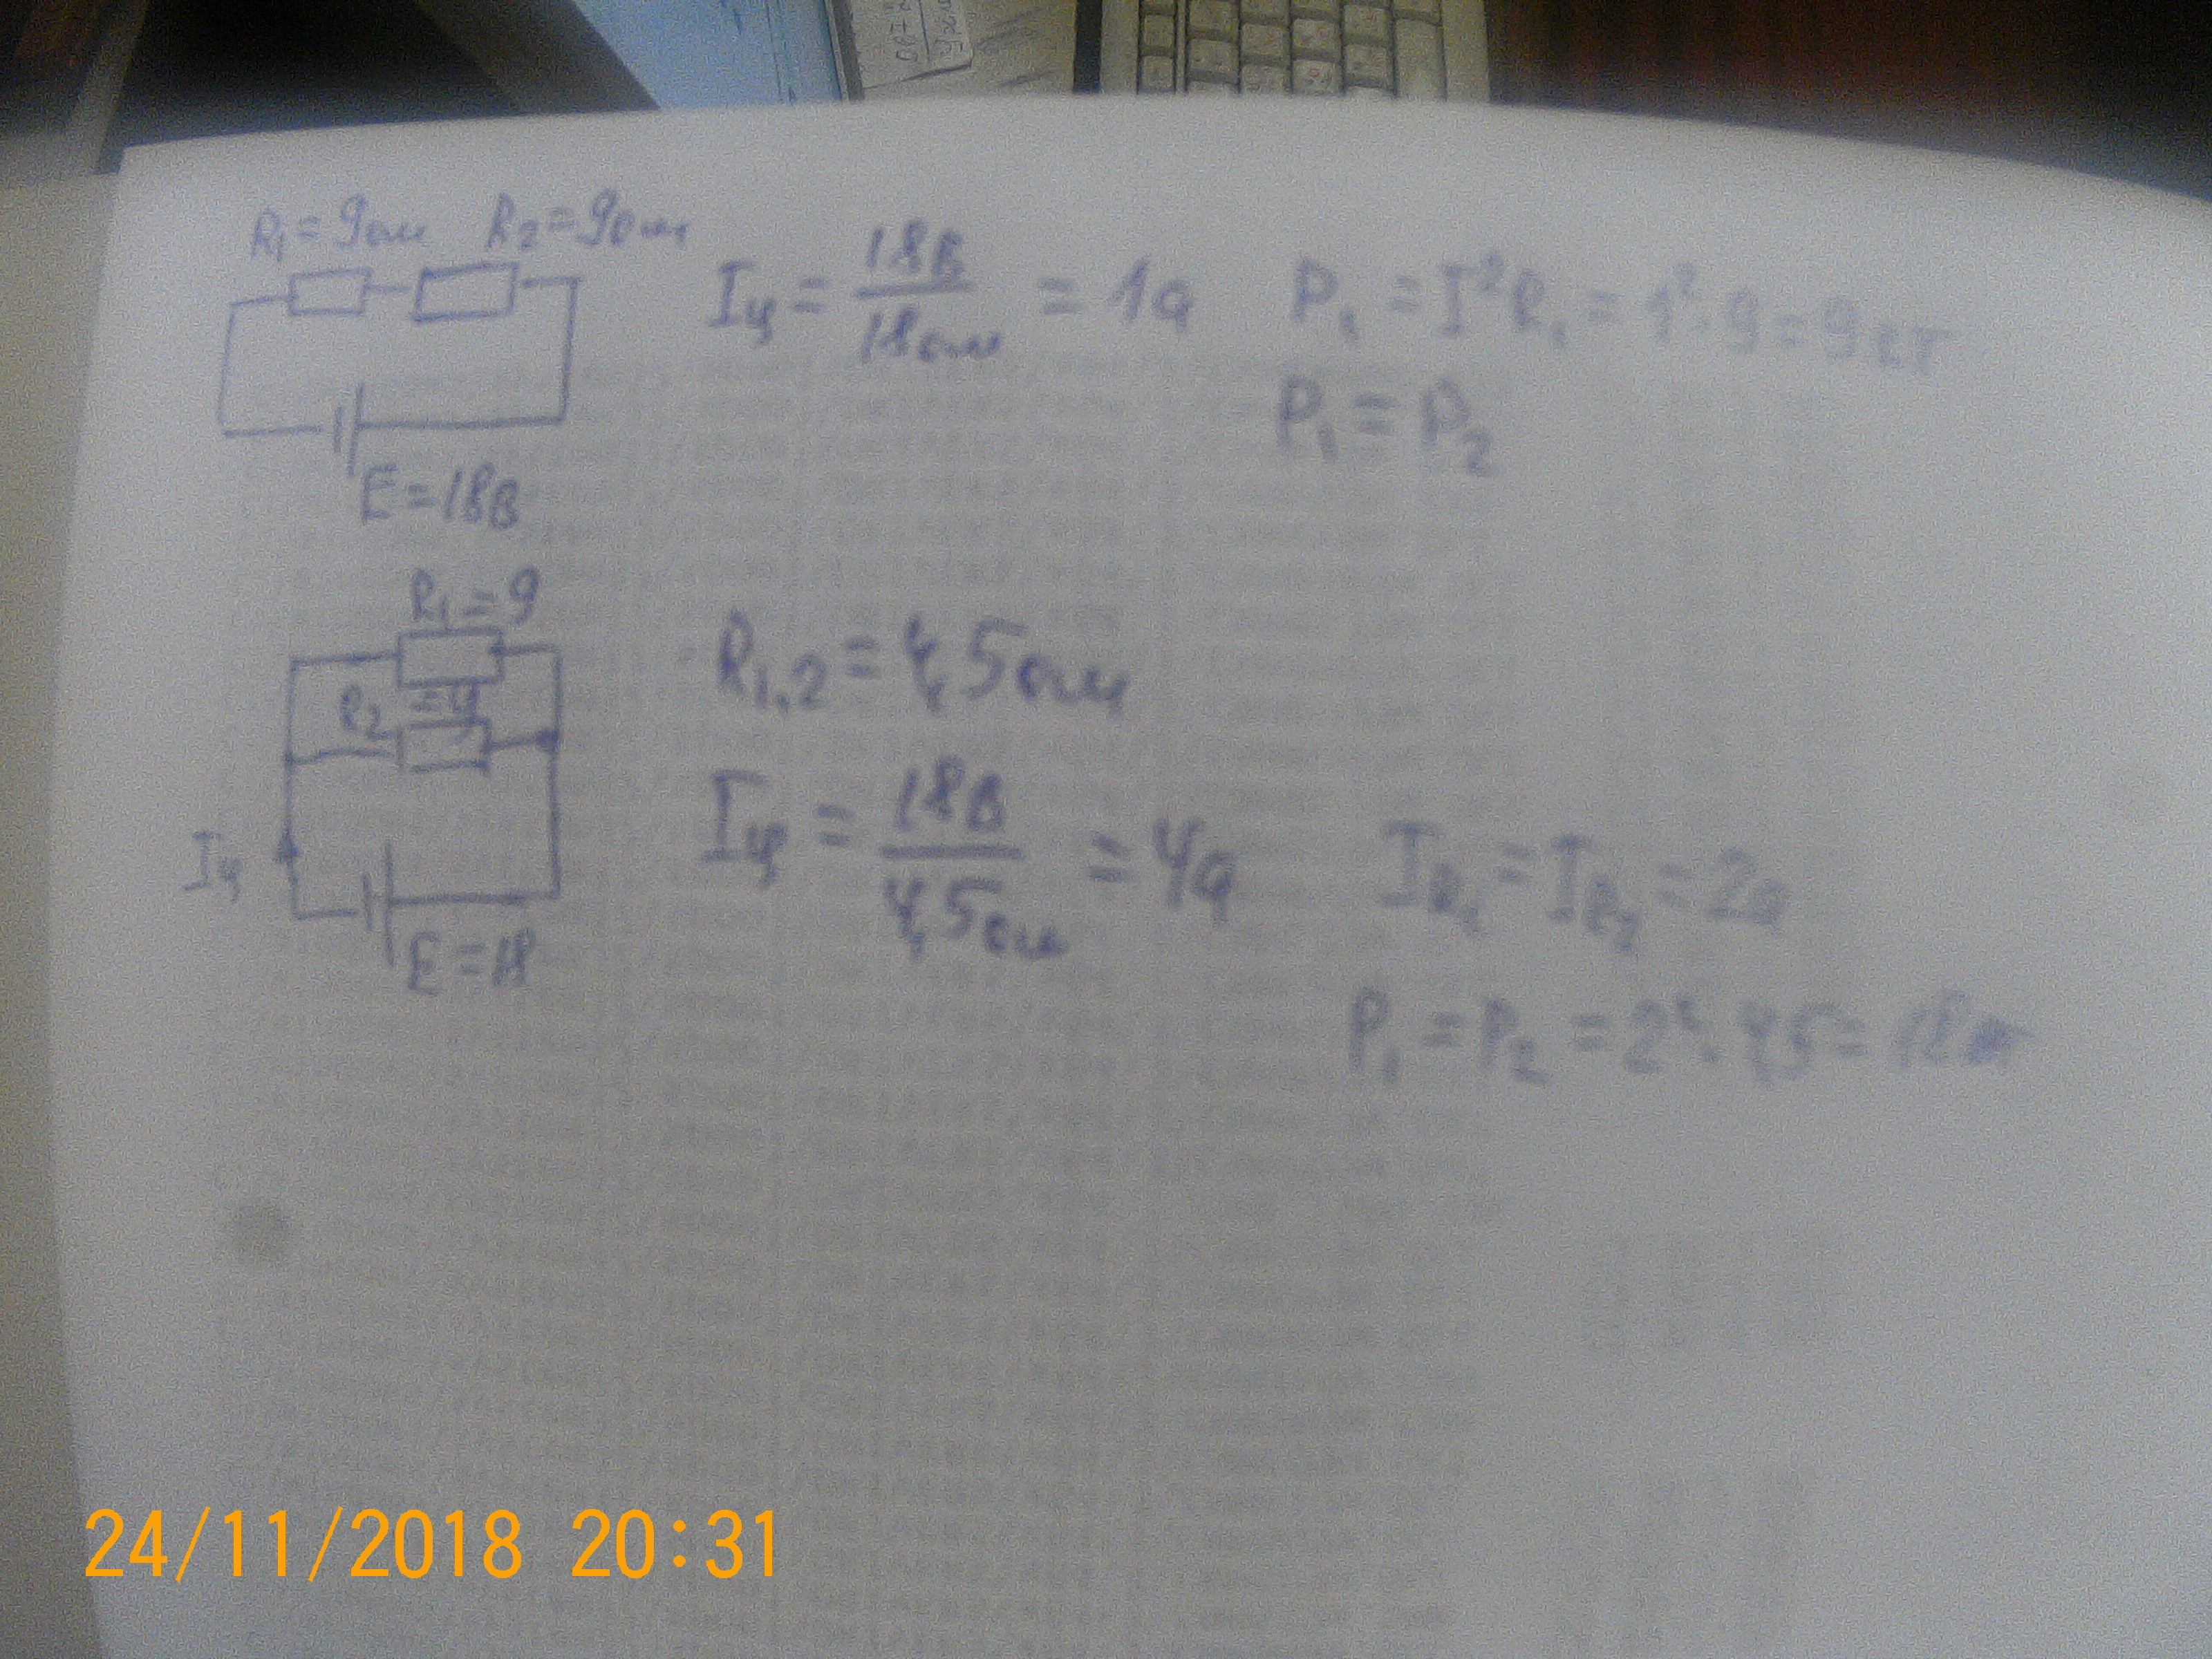 R₁ = 9ом R₂ = 9ом
Iц = 18В / 18ом = 1а P₁ = I²R₁ = 1²·9 = 9вт
P₁ = P₂
E = 18В
R₁ = 9
R₂ = 9
R₁,₂ = 4,5ом
Iц
Iц = 18В / 4,5ом = 4а IR₁ = IR₂ = 2а
E = 18
P₁ = P₂ = 2²·4,5 = 18вт
24/11/2018 20:31